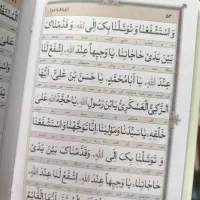 وَاسْتَشْفَعْنَا وَتَوَسَّلْنَا بِكَ اِلَى اللهِ، وَقَدَّمْنَاكَ
بَيْنَ يَدَىْ حَاجَاتِنَا، يَا وَجِيهاً عِنْدَ اللهِ، اِشْفَعْ لَنَا
عِنْدَ اللهِ، يَا اَبَا مُحَمَّدٍ، يَا حَسَنَ بْنَ عَلِىٍّ، اَيُّهَا
الزَّكِىُّ الْعَسْكَرِىُّ، يَا بْنَ رَسُولِ اللهِ، يَا حُجَّةَ اللهِ عَلٰى
خَلْقِهِ، يَا سَيِّدَنَا وَمَوْلٰينَا، اِنَّا تَوَجَّهْنَا وَاسْتَشْفَعْنَا
وَتَوَسَّلْنَا بِكَ اِلَى اللهِ، وَقَدَّمْنَاكَ بَيْنَ يَدَىْ
حَاجَاتِنَا، يَا وَجِيهاً عِنْدَ اللهِ، اِشْفَعْ لَنَا عِنْدَ اللهِ